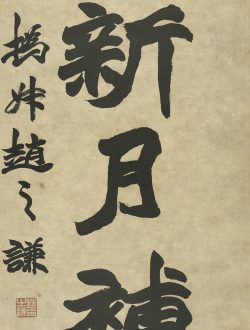 新月補
撝叔趙之謙